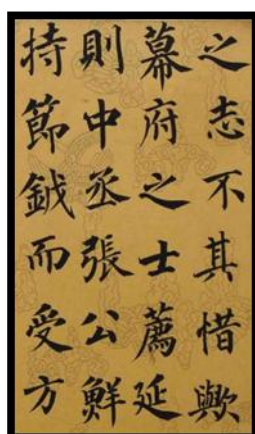 之志不其惜歟
幕府之士薦延
則中丞張公鮮
持節鉞而受方